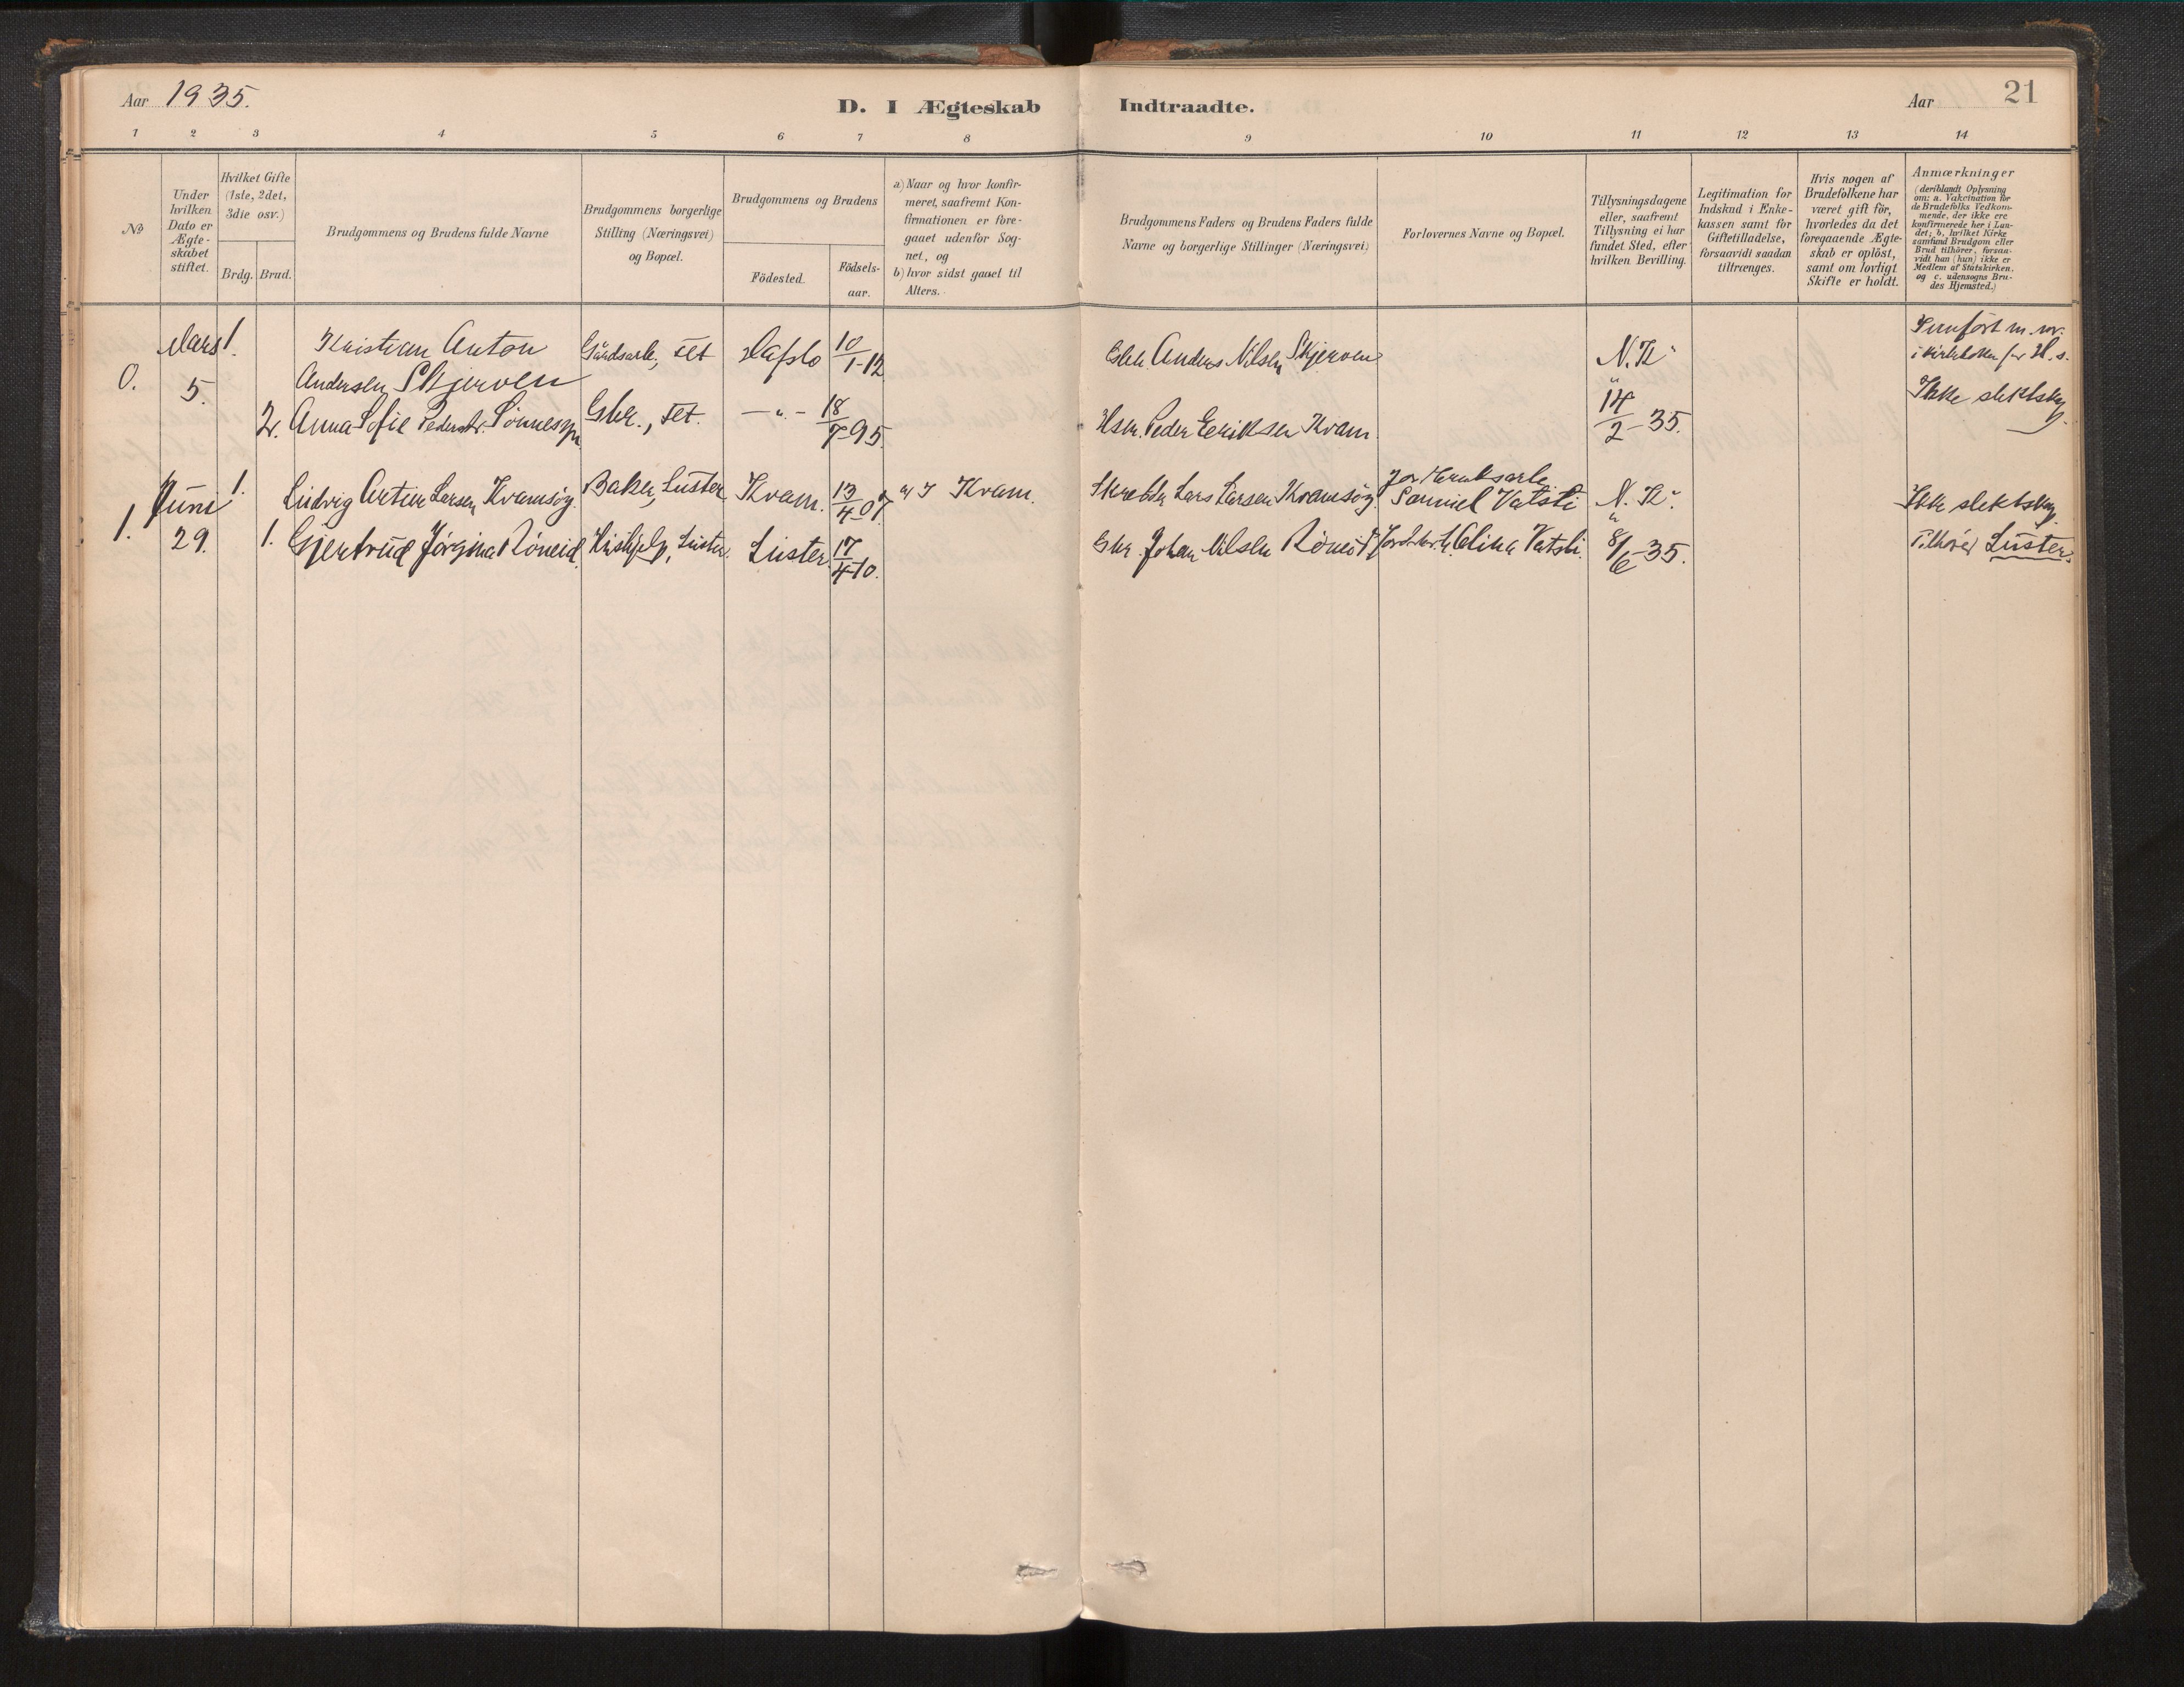 Aar 1935.
D. I Ægteskab Indtraadte.
Aar
21
1 2 3 4 5 6 7 8 9 10 11 12 13 14
№
Under
hvilken
Dato er
Ægte-
skabet
stiftet.
Hvilket Gifte
(1ste, 2det,
3die osv.)
Brdg. Brud.
Brudgommens og Brudens fulde Navne
Brudgommens borgerlige
Stilling (Næringsvei)
og Bopæl.
Brudgommens og Brudens
Födested.
Födsels-
aar.
a) Naar og hvor konfir-
meret, saafremt Kon-
firmationen er fore-
gaaet udenfor Sog-
net, og
b) hvor sidst gaaet til
Alters.
Brudgommens Faders og Brudens Faders fulde
Navne og borgerlige Stillinger (Næringsvei)
Forlovernes Navne og Bopæl.
Tillysningsdagene
eller, saafremt
Tillysning ei har
fundet Sted, efter
hvilken Bevilling.
Legitimation for
Indskud i Enke-
kassen samt for
Giftetilladelse,
forsaavidt saadan
tiltrænges.
Hvis nogen af
Brudefolkene har
været gift för,
hvorledes da det
foregaaende Ægte-
skab er oplöst,
samt om lovligt
Skifte er holdt.
Anmærkninger
(deriblandt Oplysning
om: a. Vakcination for
de Brudefolks Vedkom-
mende, der ikke ere
konfirmerede her i Lan-
det; b. hvilket Kirke
samfund Brudgom eller
Brud tilhörer, forsaa-
vidt han (hun) ikke er
Medlem af Statskirken,
og c. udensogns Bru-
des Hjemsted.)
0. Mars 5. 1. Kristian Anton
Andersen Skjerven
Gårdsarb., Tet Hafslo 10/1-12
Anders Nilsen Skjerven
N.K.
Innført m. nr.
i kirkeboken for H. s.
2. Anna Sofie Pedersdtr. Sønnesyn
Gbr., Tet. —"— 18/7-95
Hsm. Peder Eeriksen Kvam
14/2-35.
Ikke slektskap
1. Juni 29. 1. Ludvig Artur Larsen Kvamsøy.
Baker, Luster Kvam. 13/4-07 a) I Kvam.
Lars Larsen Kvamsøy
Samuel Vatsli
N. K.
Ikke slektskap
1. Gjertrud Jørgina Røneid.
Hushjelp, Luster. Luster 17/4-10.
Gbr. Johan Nilsen Røneid
Elina Vatsli.
8/6-35.
Tilhører Luster.